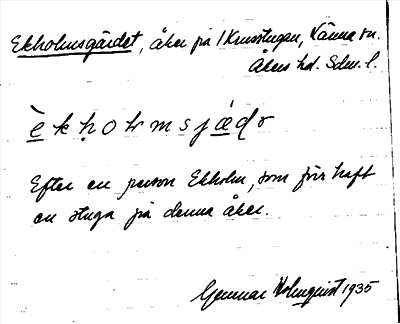 Ekholmsgärdet, åker på 1 Krusstugan, Länna sn.
Åkers hd. Sdm. l.
è k h o l m s j æ d r
Efter en person Ekholm, som förr haft
en stuga på denna åker.
Gunnar Holmquist 1935